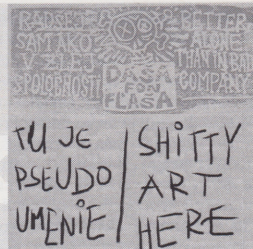 RADŠEJ
SÁM AKO
V ZLEJ
SPOLOČNOSTI
DASA
FON
FĽASA
BETTER
ALONE
THAN IN BAD
COMPANY
TU JE
PSEUDO
UMENIE
SHITTY
ART
HERE